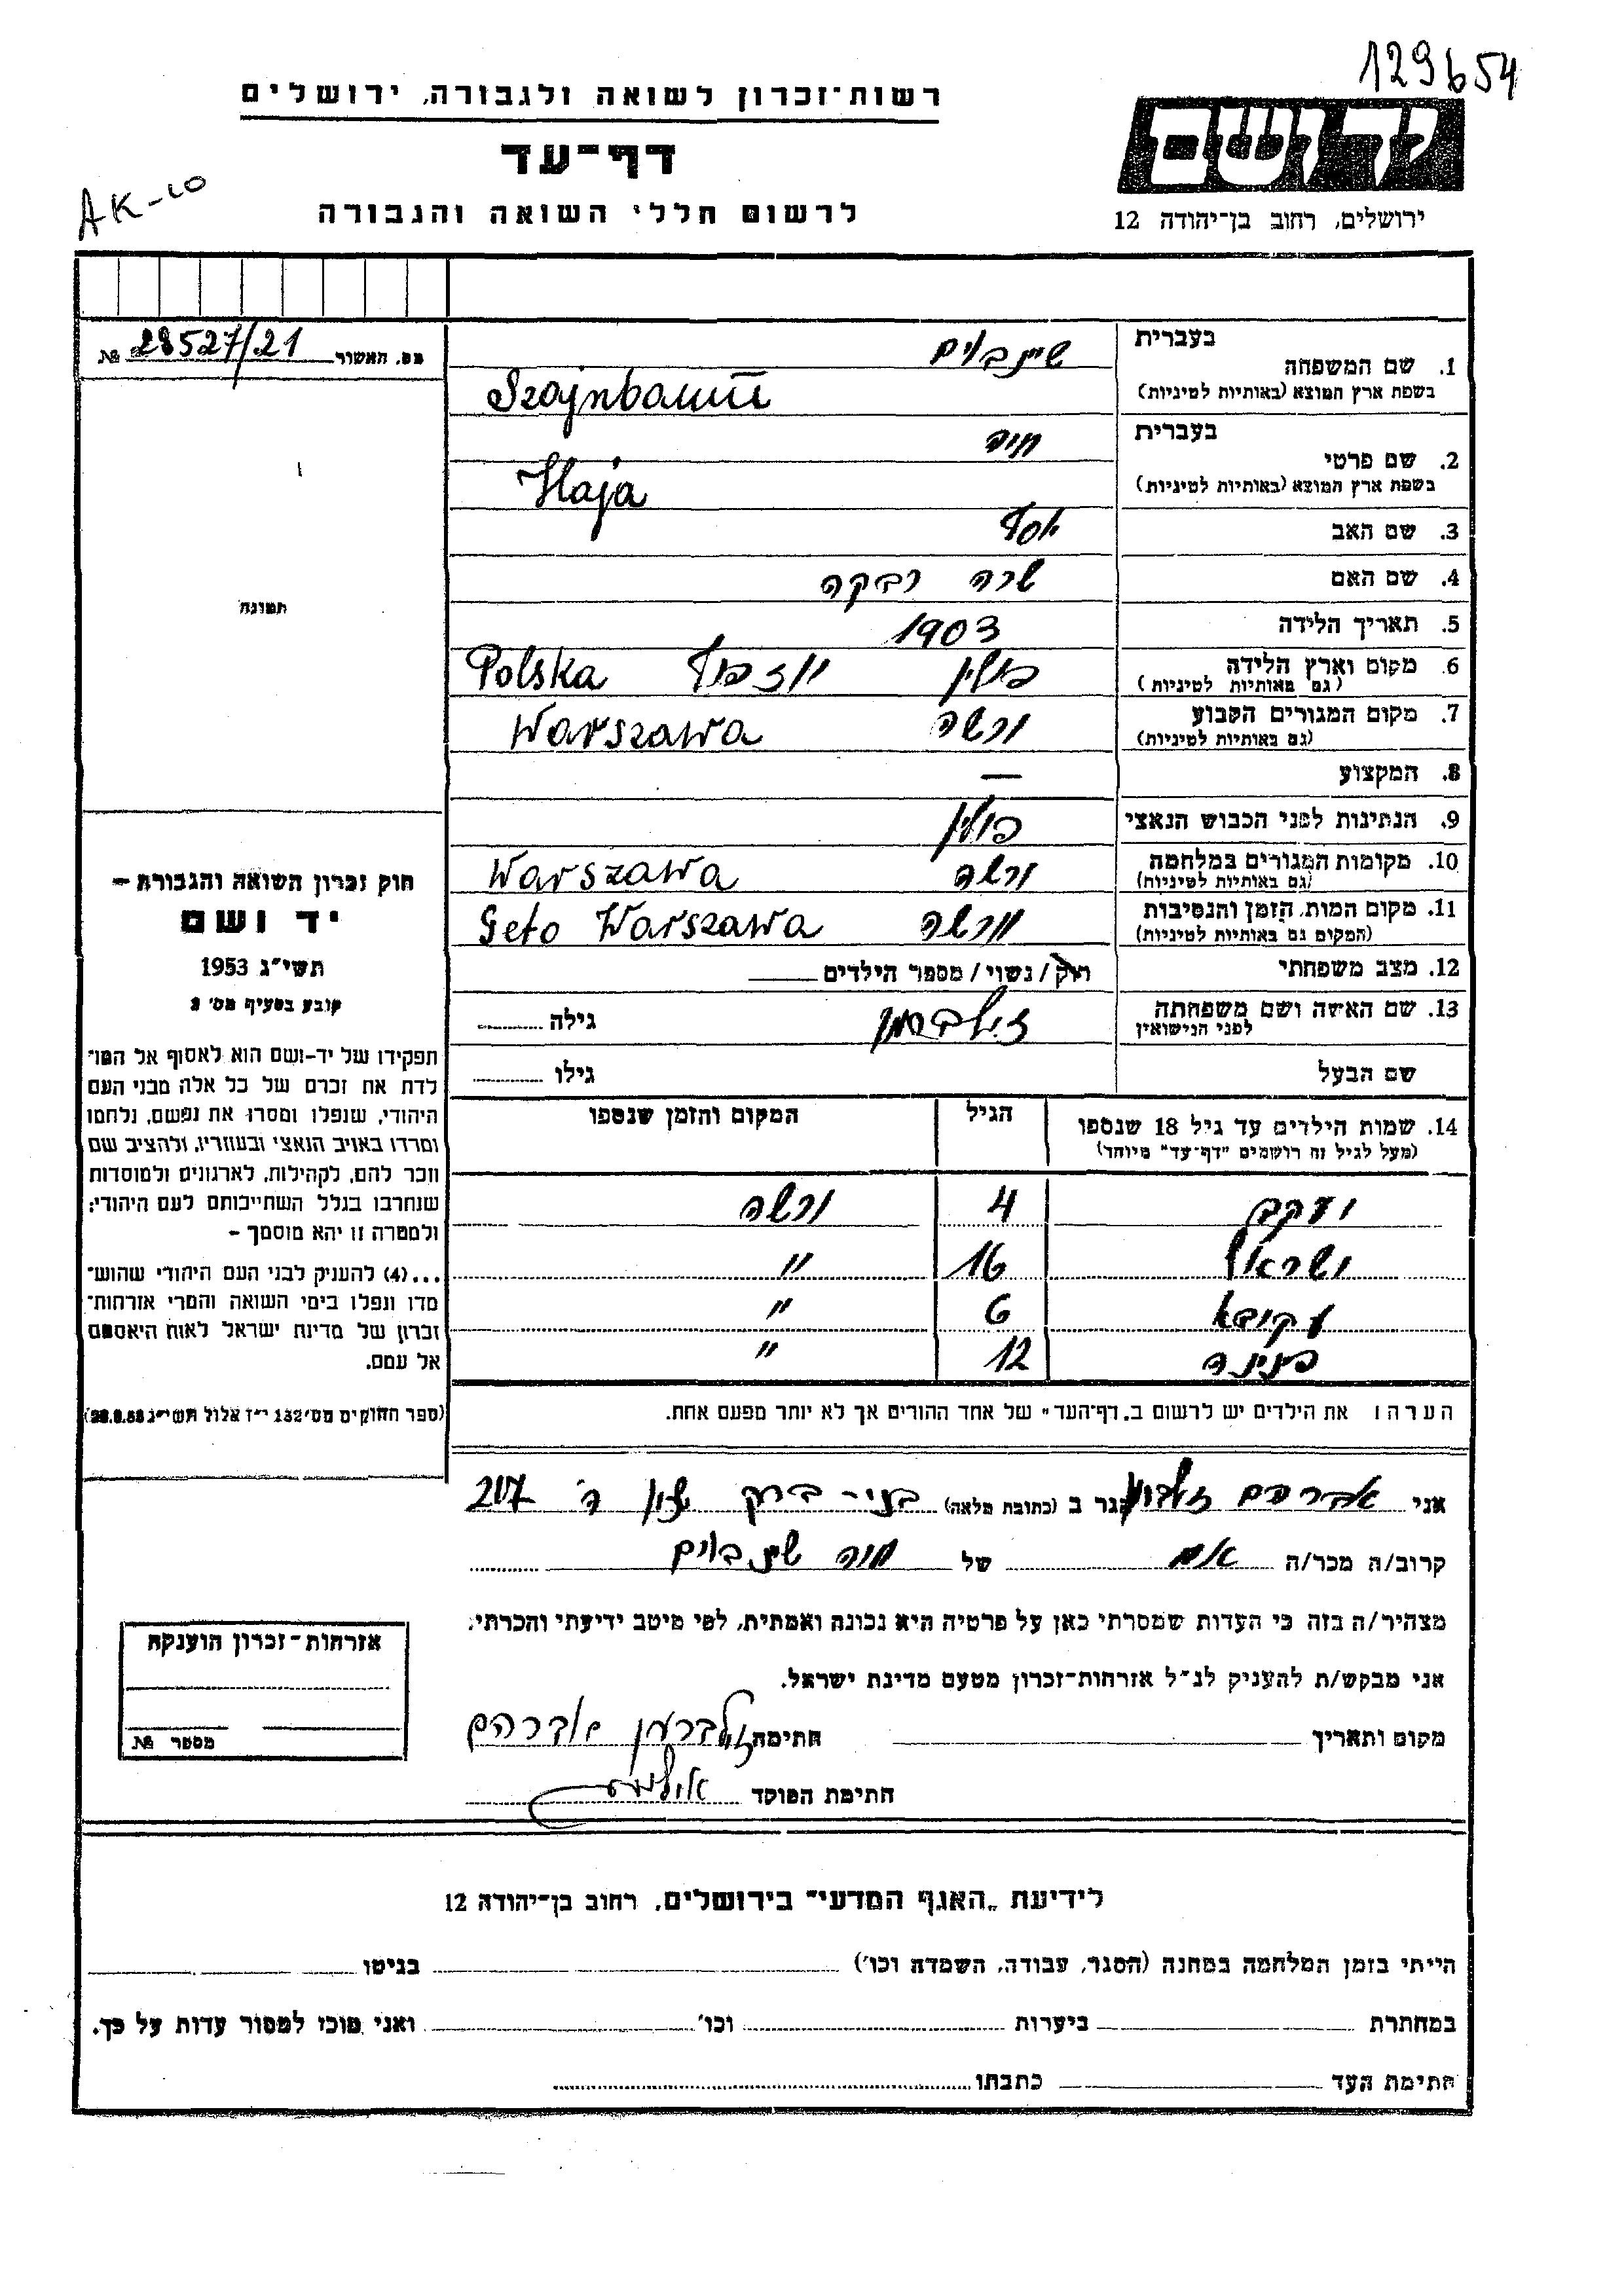 129654
רשות-זכרון לשואה ולגבורה, ירושלים
דף-עד
לרשום חללי השואה והגבורה
AK-10
יד ושם
ירושלים, רחוב בן-יהודה 12
מס. האשור 28527/21 №
בעברית שיינבוים
1. שם המשפחה
בשפת ארץ המוצא (באותיות לטיניות) Szajnbaum
בעברית חיה
2. שם פרטי
בשפת ארץ המוצא (באותיות לטיניות) Haja
3. שם האב יוסף
4. שם האם שרה רבקה
5. תאריך הלידה 1903
6. מקום וארץ הלידה פולין יוזפוף Polska
(גם באותיות לטיניות)
7. מקום המגורים הקבוע ורשה Warszawa
(גם באותיות לטיניות)
8. המקצוע —
9. הנתינות לפני הכבוש הנאצי פולין
10. מקומות המגורים במלחמה ורשה Warszawa
(גם באותיות לטיניות)
11. מקום המות, הזמן והנסיבות ורשה Geto Warszawa
(המקום גם באותיות לטיניות)
12. מצב משפחתי רווק / נשוי / מספר הילדים
13. שם האשה ושם משפחתה זילברמן גילה
לפני הנישואין
שם הבעל גילו
14. שמות הילדים עד גיל 18 שנספו הגיל המקום והזמן שנספו
(מעל לגיל זה רושמים "דף-עד" מיוחד)
יעקב 4 ורשה
ישראל 16 "
עקיבא 6 "
פנינה 12 "
הערה: את הילדים יש לרשום ב"דף-העד" של אחד ההורים אך לא יותר מפעם אחת.
תמונה
חוק זכרון השואה והגבורה –
יד ושם
תשי"ג 1953
קובע בסעיף מס' 2
תפקידו של יד-ושם הוא לאסוף אל המו־
לדת את זכרם של כל אלה מבני העם
היהודי, שנפלו ומסרו את נפשם, נלחמו
ומרדו באויב הנאצי ובעוזריו, ולהציב שם
וזכר להם, לקהילות, לארגונים ולמוסדות
שנחרבו בגלל השתייכותם לעם היהודי;
ולמטרה זו יהא מוסמך –
...(4) להעניק לבני העם היהודי שהוש־
מדו ונפלו בימי השואה והמרי אזרחות־
זכרון של מדינת ישראל לאות היאספם
אל עמם.
(ספר החוקים מס' 132 י"ז אלול תשי"ג 28.8.53)
אני אברהם זילברמן הגר ב (כתובת מלאה) בני-ברק 207
קרוב/ה מכר/ה אח של חיה שיינבוים
מצהיר/ה בזה כי העדות שמסרתי כאן על פרטיה היא נכונה ואמתית, לפי מיטב ידיעתי והכרתי.
אני מבקש/ת להעניק לנ"ל אזרחות-זכרון מטעם מדינת ישראל.
מקום ותאריך חתימה זילברמן אברהם
חתימת הפוקד
אזרחות-זכרון הוענקה
מספר №
לידיעת "האגף המדעי" בירושלים, רחוב בן-יהודה 12
הייתי בזמן המלחמה במחנה (הסגר, עבודה, השמדה וכו') בגיטו
במחתרת ביערות וכו' ואני מוכן למסור עדות על כך.
חתימת העד כתבתו